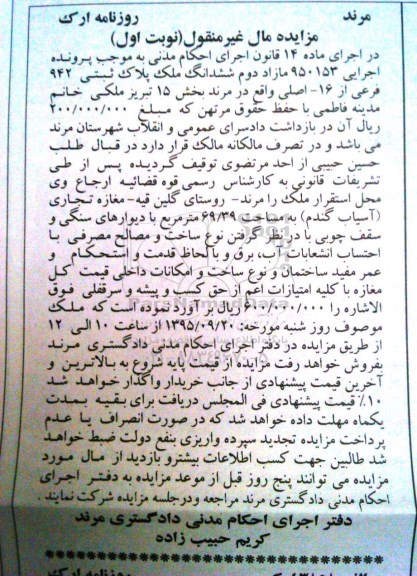 مرند روزنامه ارک
مزایده مال غیرمنقول(نوبت اول)
در اجرای ماده ۱۴ قانون اجرای احکام مدنی به موجب پرونده
اجرایی ۹۵۰۱۵۳ مازاد دوم ششدانگ ملک پلاک ثبتی ۹۴۲
فرعی از ۱۶- اصلی واقع در مرند بخش ۱۵ تبریز ملکی خانم
مدینه فاطمی با حفظ حقوق مرتهن که مبلغ ۲۰۰/۰۰۰/۰۰۰
ریال آن در بازداشت دادسرای عمومی و انقلاب شهرستان مرند
می باشد و در تصرف مالکانه مالک قرار دارد در قبال طلب
حسین حبیبی از احد مرتضوی توقیف گردیده پس از طی
تشریفات قانونی به کارشناس رسمی قوه قضائیه ارجاع وی
محل استقرار ملک را مرند- روستای گلین قیه-مغازه تجاری
(آسیاب گندم) به مساحت ۶۹/۳۹ مترمربع با دیوارهای سنگی و
سقف چوبی با در نظر گرفتن نوع ساخت و مصالح مصرفی با
احتساب انشعابات آب، برق و با لحاظ قدمت و استحکام و
عمر مفید ساختمان و نوع ساخت و امکانات داخلی قیمت کل
مغازه با کلیه امتیازات اعم از حق کسب و پیشه و سرقفلی فوق
الاشاره را ۶۰۰/۰۰۰/۰۰۰ ریال بر آورد نموده است که ملک
موصوف روز شنبه مورخه: ۱۳۹۵/۰۹/۲۰ از ساعت ۱۰ الی ۱۲
از طریق مزایده در دفتر اجرای احکام مدنی دادگستری مرند
بفروش خواهد رفت مزایده از قیمت پایه شروع به بالاترین و
آخرین قیمت پیشنهادی از جانب خریدار واگذار خواهد شد
۱۰٪ قیمت پیشنهادی فی المجلس دریافت برای بقیه بمدت
یکماه مهلت داده خواهد شد که در صورت انصراف یا عدم
پرداخت مزایده تجدید سپرده واریزی بنفع دولت ضبط خواهد
شد طالبین جهت کسب اطلاعات بیشترو بازدید از مال مورد
مزایده می توانند پنج روز قبل از موعد مزایده به دفتر اجرای
احکام مدنی دادگستری مرند مراجعه ودرجلسه مزایده شرکت نمایند.
دفتر اجرای احکام مدنی دادگستری مرند
کریم حبیب زاده
روزنامه ارک